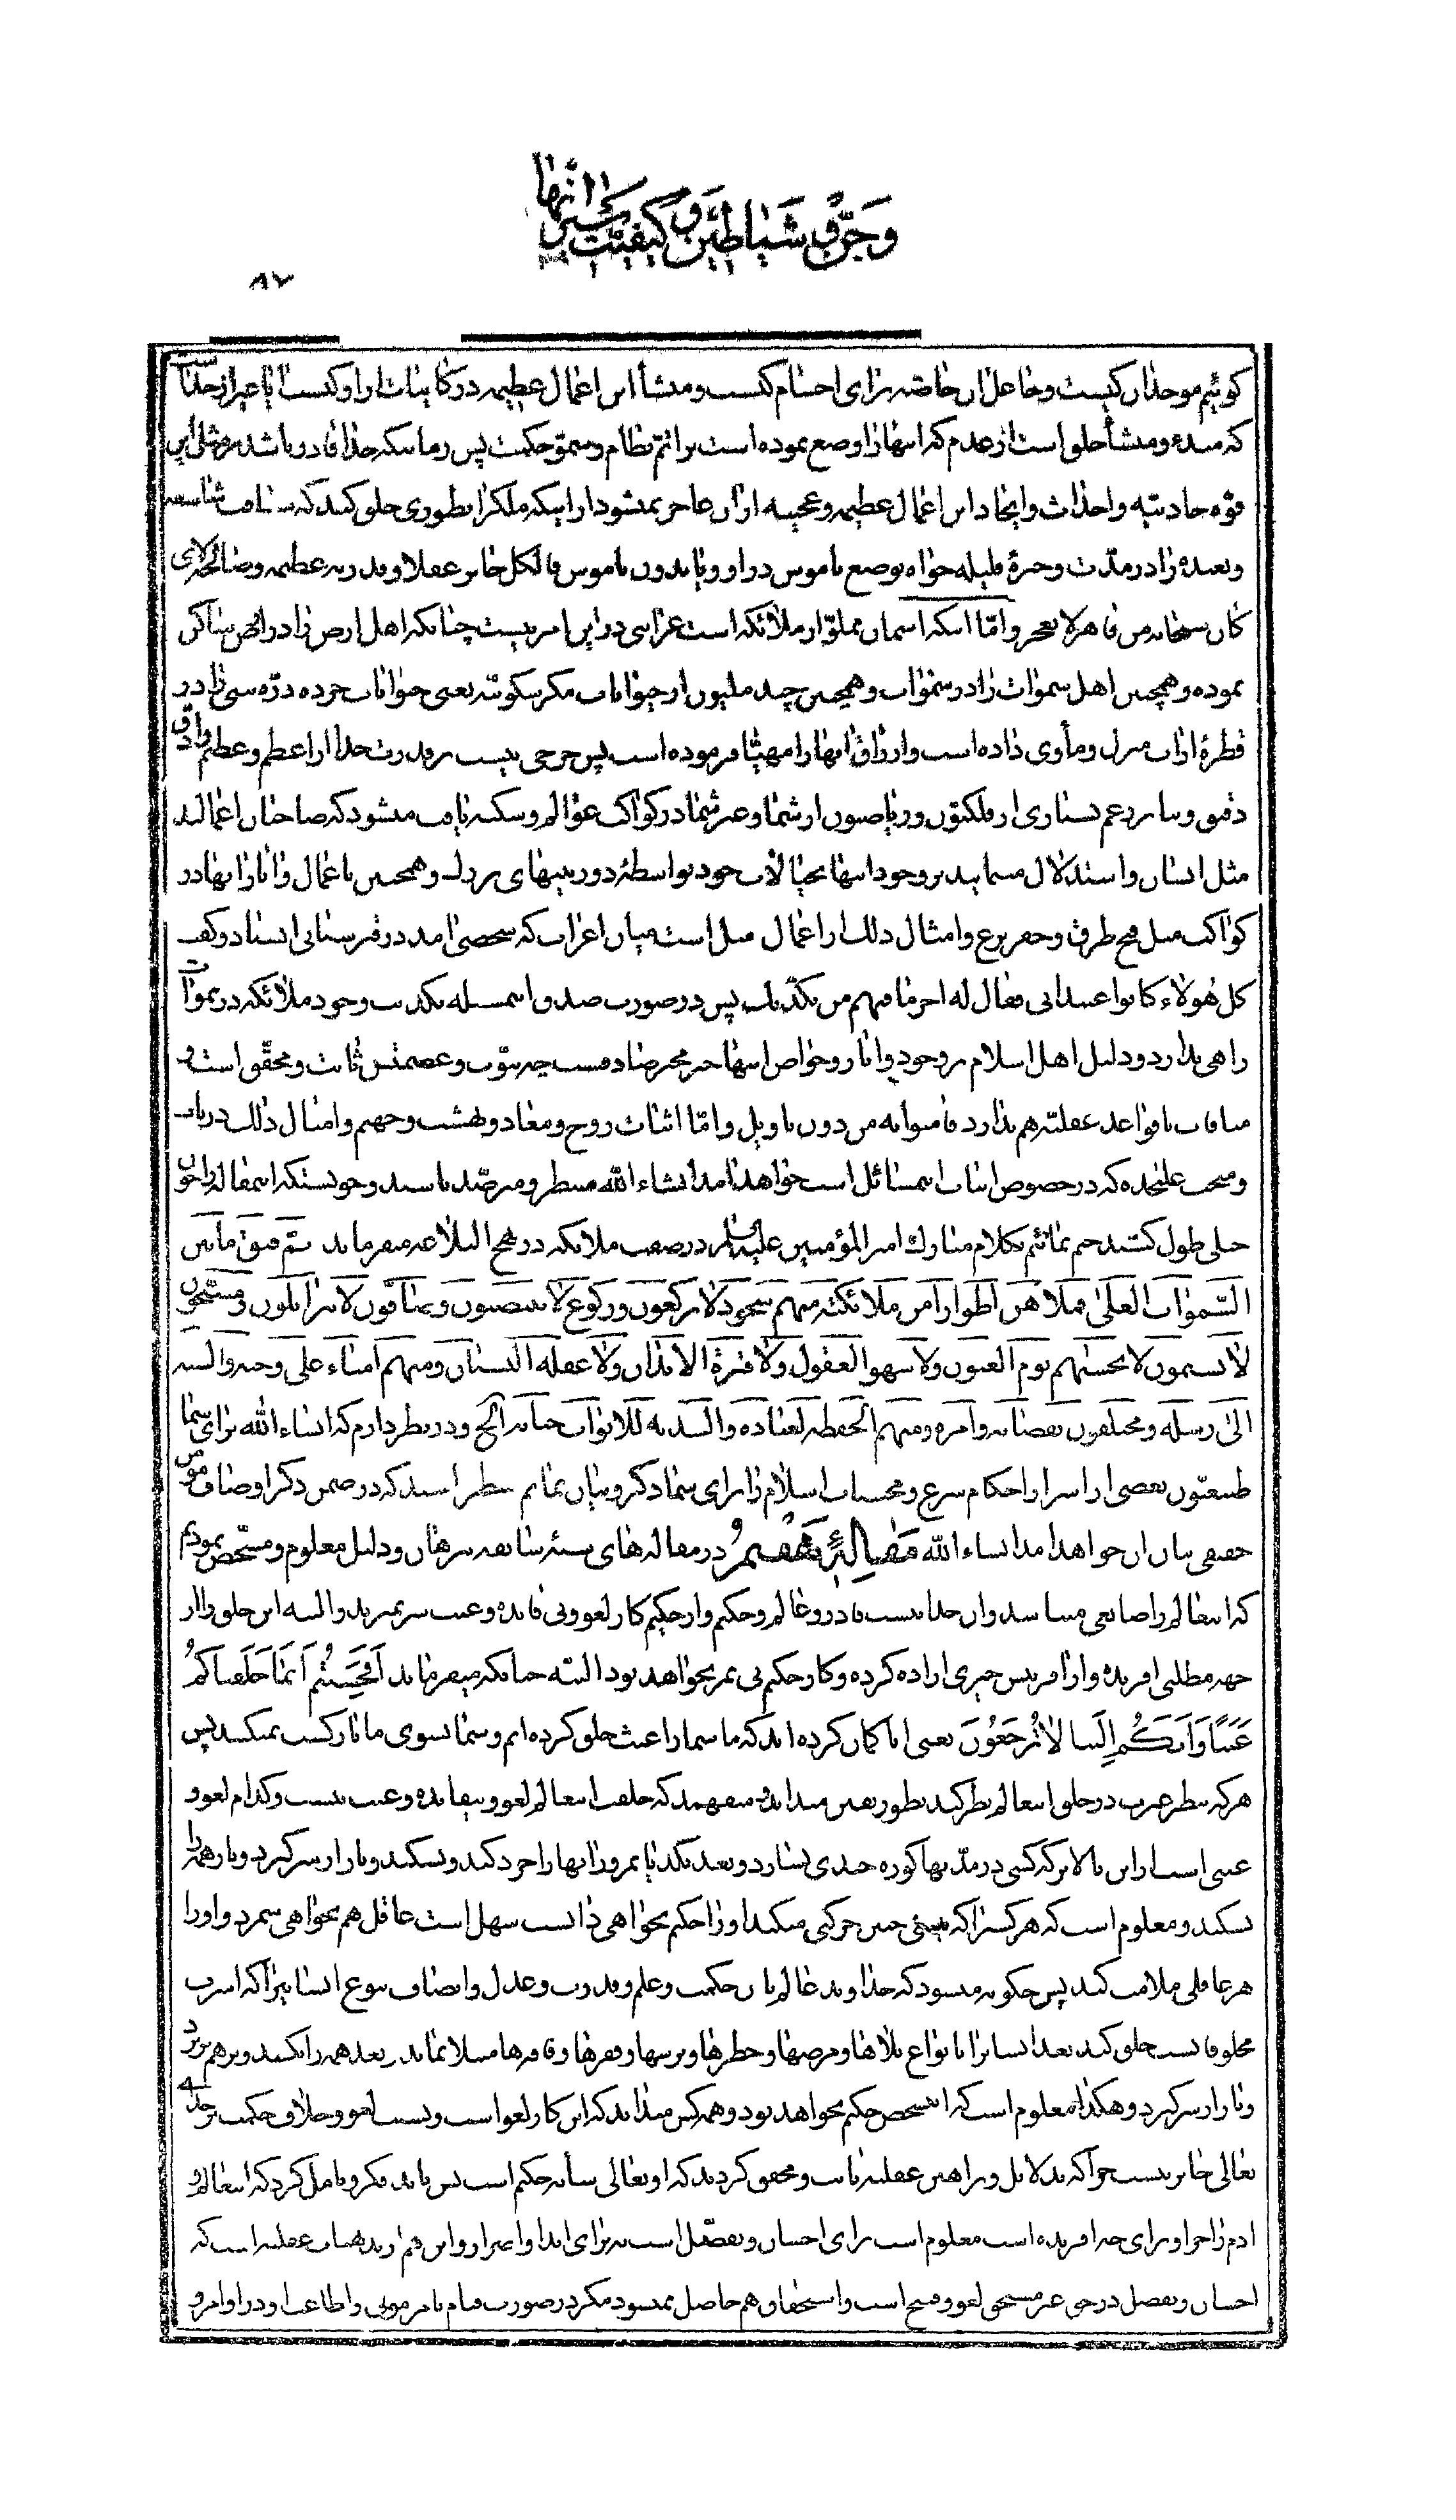 وجن و شیاطین و کیفیت انها
۸۷
کوئیم موجد ان کیست و فاعل ان خاصه برای اجسام کیست و منشأ این اعمال عظیمه در کاینات از او کیست ایا غیر از خداست
که مبدء و منشأ خلق است از عدم که اینها را وضع نموده است بر اتم نظام و حکمت پس زمانیکه خدا قادر باشد بر مثل این
قوه جاذبیه و احداث و ایجاد این اعمال عظیمه و عجیبه از ان عاجز نمیشود از اینکه ملک را بطوری خلق کند که
و بعیده را در مدت وجیزهٔ قلیله خواه بوضع ناموس در او و یا بدون ناموس فالکل جائز عقلا و قدرته عظیمه
کان سبحانه من قاهر لا یعجز و اما اینکه اسمان مملو از ملائکه است غرابتی در این امر نیست چنانکه اهل ارض را در ارض ساکن
نموده و همچنین اهل سموات را در سموات و همچنین چند ملیون از حیوانات مکرسکوبیه یعنی حیوانات خرده ذره بینی را در
قطرهٔ از اب منزل و مأوی داده است و ارزاق انها را مهیا فرموده است پس حرجی نیست بر قدرت خدا از اعظم و عظیم و ادق
دقیق و بنا بر زعم بسیاری از فلکیون و ریاضیون از شما و غیر شما در کواکب عوالم و سکنه یافت میشود که صاحبان اعمالند
مثل انسان و استدلال مینمایند بر وجود اینها بخیالات خود بواسطهٔ دوربینهای بزرک و همچنین باعمال و اثار اینها در
کواکب مثل فتح طرق و حفر ترع و امثال ذلک از اعمال مثل است میان اعراب که شخصی امد در قبرستانی ایستاد و کفت
کل هولاء کانوا عبیدا لی فقال له اخر ما فیهم من یکذبک پس در صورت صدق این مسئله تکذیب وجود ملائکه در سموات
راهی ندارد و دلیل اهل اسلام بر وجود و اثار و خواص اینها خبر مخبر صادقست چه نبوت و عصمتش ثابت و محقق است و
منافات با قواعد عقلیه هم ندارد فامنوا به من دون تاویل و اما اثبات روح و معاد و بهشت و جهنم و امثال ذلک در باب
و مبحث علیحده که در خصوص اثبات این مسائل است خواهد امد انشاء الله منتظر و مترصد باشید و چونکه این مقاله را چون
خیلی طول کشید ختم نمائیم بکلام مبارک امیر المؤمنین علیه السلام در صفت ملائکه در نهج البلاغه میفرماید ثم فتق ما بین
السموات العلی فملاهن اطوارا من ملائکته منهم سجود لا یرکعون و رکوع لا ینتصبون و صافون لا یتزایلون و مسبحون
لا یسئمون لا یغشیهم نوم العیون ولا سهو العقول ولا فترة الابدان ولا غفلة النسیان و منهم امناء علی وحیه و السنة
الی رسله و مختلفون بقضائه و امره و منهم الحفظة لعباده و السدنة للابواب جنانه الخ و در نظر دارم که انشاء الله برای شما
طبیعیون بعضی از اسرار و احکام شرع و محسنات اسلام را برای شما ذکر و بیان نمایم بنظرم رسید که در ضمن ذکر اوصاف مؤمن
حقیقی بیان ان خواهد امد انشاء الله مقالهٔ هفتم در مقاله‌های سابقه ببرهان و دلیل معلوم و مشخص نمودیم
که این عالم را صانعی میباشد و ان خدائیست قادر و عالم و حکیم و از حکیم کار لغو و بی فایده و عبث سر نمیزند و البته این خلق را از
جهة مطلبی افریده و از افرینش چیزی اراده کرده و کار حکیم بی ثمر نخواهد بود البته چنانکه میفرماید افحسبتم انما خلقناکم
عبثا و انکم الینا لا ترجعون یعنی ایا کمان کرده اید که ما شما را عبث خلق کرده ایم و شما بسوی ما بازکشت نمیکنید پس
هر که بنظر عبرت در خلق این عالم نظر کند بطور یقین میداند و میفهمد که خلقت این عالم لغو و بیفایده و عبث نیست و کدام لغو و
عبثی است از این بالاتر که کسی در مدتها کوزه چندی بسازد و بعد یکدفعه انها را خرد کند و بشکند و باز از سر کیرد و باز همه را
بشکند و معلوم است که هر کس را که بینی چنین حرکتی میکند او را حکیم نخواهی دانست سهل است عاقل هم نخواهی شمرد و او را
هر عاقلی ملامت کند پس چکونه میشود که خداوند عالم با ان حکمت و علم و قدرت و عدل و انصاف نوع انسانیرا که اشرف
مخلوقاتست خلق کند بعد انسانرا بانواع بلاها و مرضها و خطرها و ترسها و فقرها و فاقه‌ها مبتلا نماید و بعد همه را بکشد و بر هم بزند
و باز از سر کیرد و هکذا معلوم است که این شخص حکیم نخواهد بود و همه کس میداند که این کار لغو است و نسبت لغو و خلاف حکمت بر خدای
تعالی جایز نیست چرا که بدلایل و براهین عقلیه ثابت و محقق کردید که او تعالی شأنه حکیم است پس باید فکر و تامل کرد که این عالم و
ادم را چرا و برای چه افریده است معلوم است برای احسان و تفضل است نه برای ایذا و اضرار و این هم از بدیهیات عقلیه است که
احسان و تفضل در حق غیر مستحق لغو و قبیح است و استحقاق هم حاصل نمیشود مکر در صورت قیام بامر مولی و اطاعت او در اوامر و